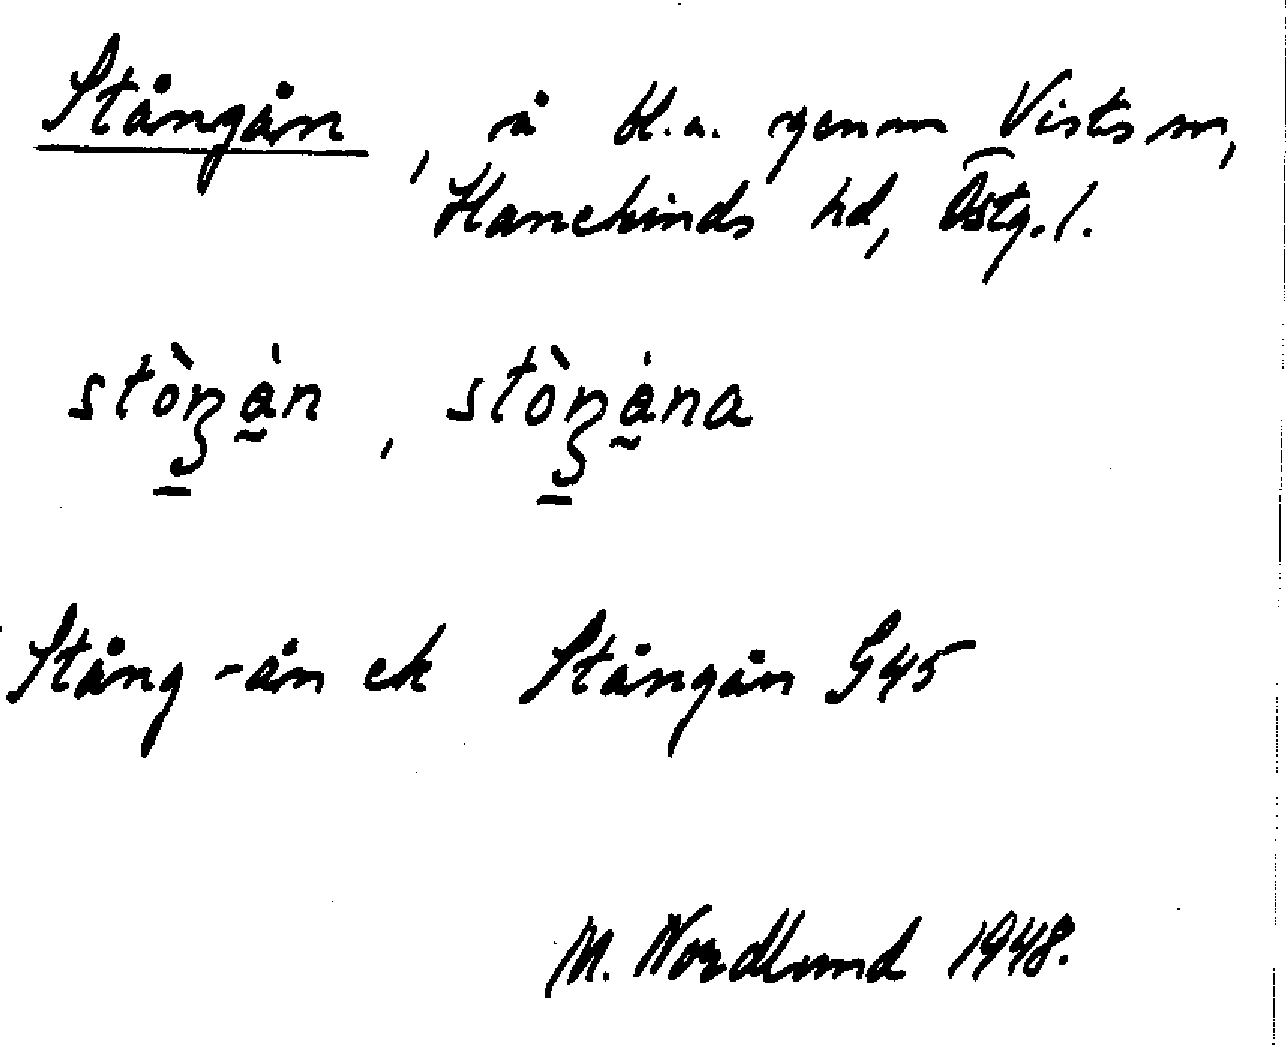 Stångån, å bl.a. genom Vists sn,
Hanekinds hd, Östg.l.
stòŋån, stòŋåna
Stång-ån ek Stångån G45
M. Nordlund 1948.